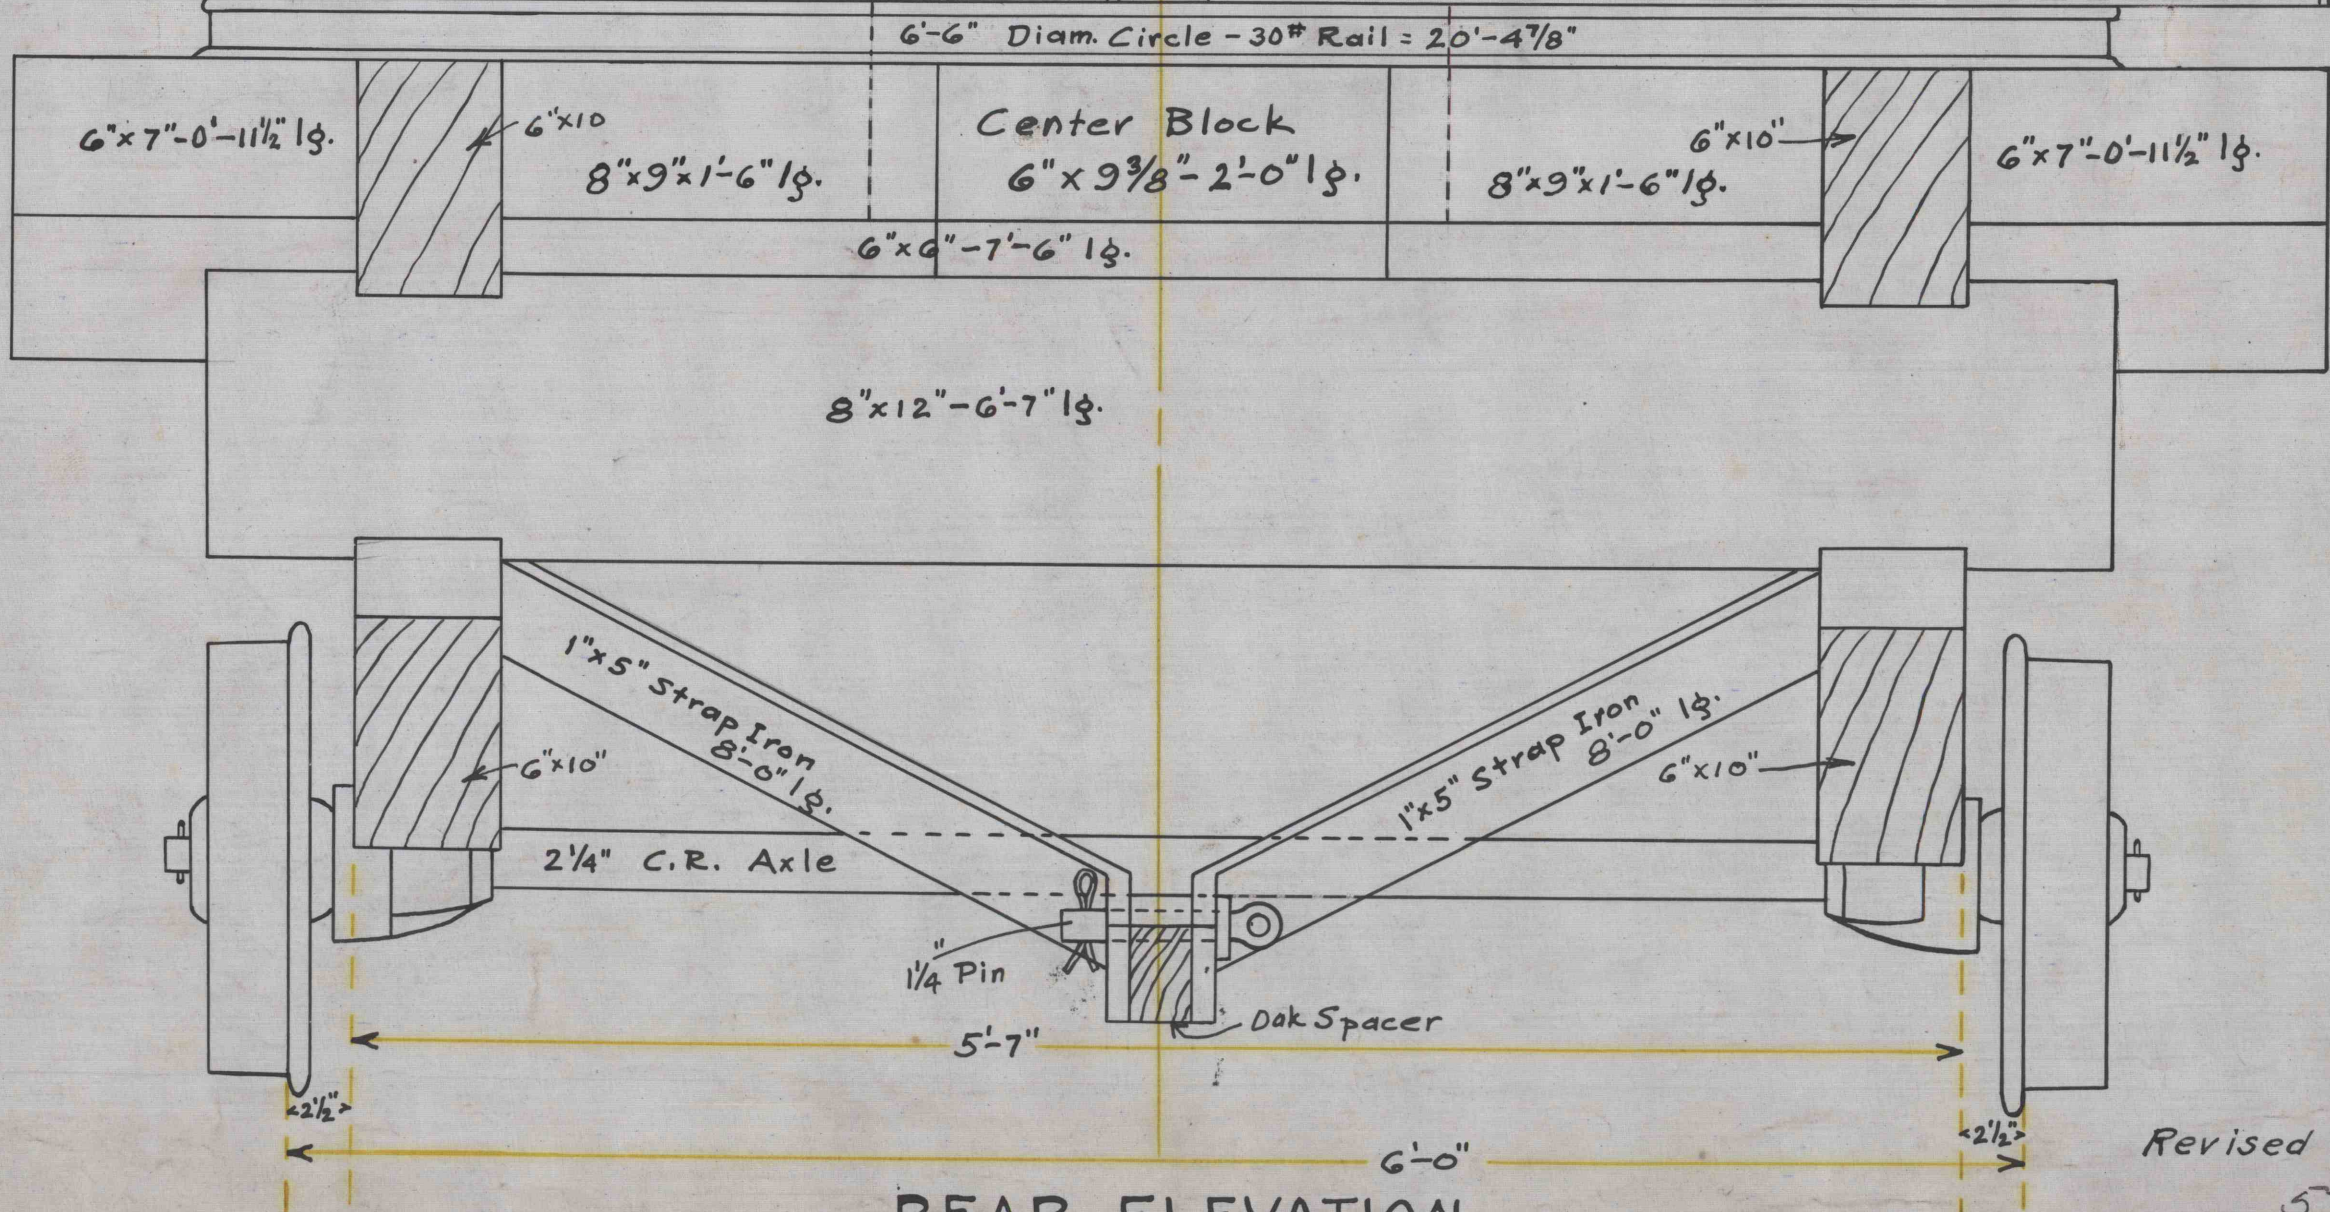 6'-6" Diam. Circle - 30# Rail = 20'-4 7/8"
6"x7"-0'-11 1/2" lg.
6"x10
8"x9"x1'-6" lg.
Center Block
6" x 9 3/8" - 2'-0" lg.
6"x10"
8"x9"x1'-6" lg.
6"x7"-0'-11 1/2" lg.
6"x6"-7'-6" lg.
8"x12"-6'-7" lg.
1"x5" Strap Iron
8'-0" lg.
1"x5" Strap Iron
8'-0" lg.
6"x10"
6"x10"
2 1/4" C.R. Axle
1 1/4" Pin
Oak Spacer
5'-7"
2 1/2"
2 1/2"
6'-0"
Revised
REAR ELEVATION